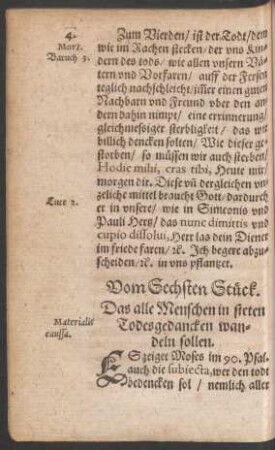 4.
Mors.
Baruch 5.
Zum Vierden / ist der Todt / dem
wir im Rachen stecken / der vns Kin-
dern des tods / wie allen vnsern Vä-
tern vnd Vorfaren / auff der Fersen
teglich nachschleicht / jtzt einen guten
Nachbarn vnd Freund vber den an-
dern dahin nimpt / eine erinnerung /
gleichmessiger sterbligkeit / das wir
billich dencken solten / Wie dieser ge-
storben / so müssen wir auch sterben /
Hodie mihi, cras tibi, Heute mir /
morgen dir. Diese vñ dergleichen vn-
zeliche mittel braucht Gott / dardurch
er in vnsere / wie in Simeonis vnd
Pauli Hertz / das nunc dimittis vnd
cupio dissolui, Herr las dein Diener
im friede faren / ꝛc. Ich begere abzu-
scheiden / ꝛc. in vns pflantzet.
Luce 2.
Vom Sechsten Stück.
Das alle Menschen in steten
Todesgedancken wan-
deln sollen.
Materialis
caussa.
ES zeiget Moses im 90. Psal.
auch die subiecta, wer den todt
bedencken sol / nemlich aller